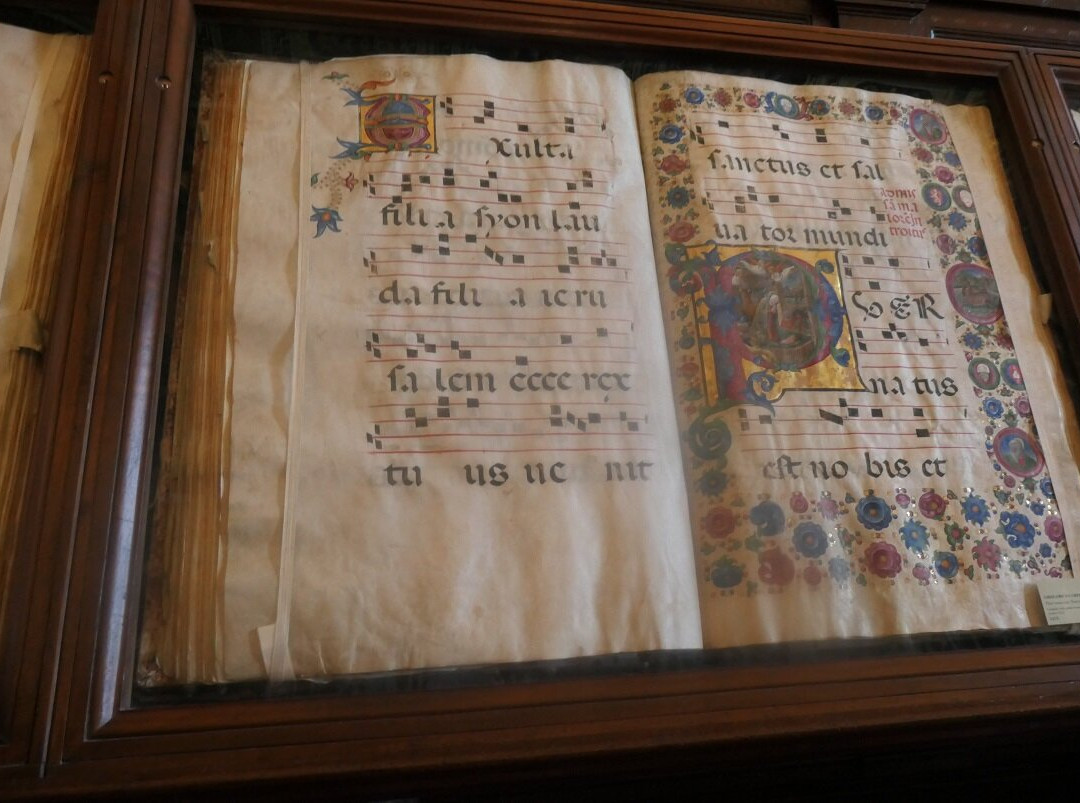 EXulta
fili a syon lau
da fili a ieru
sa lem ecce rex
tu us ue nit
sanctus et sal
ua tor mundi
PVER
na tus
est no bis et